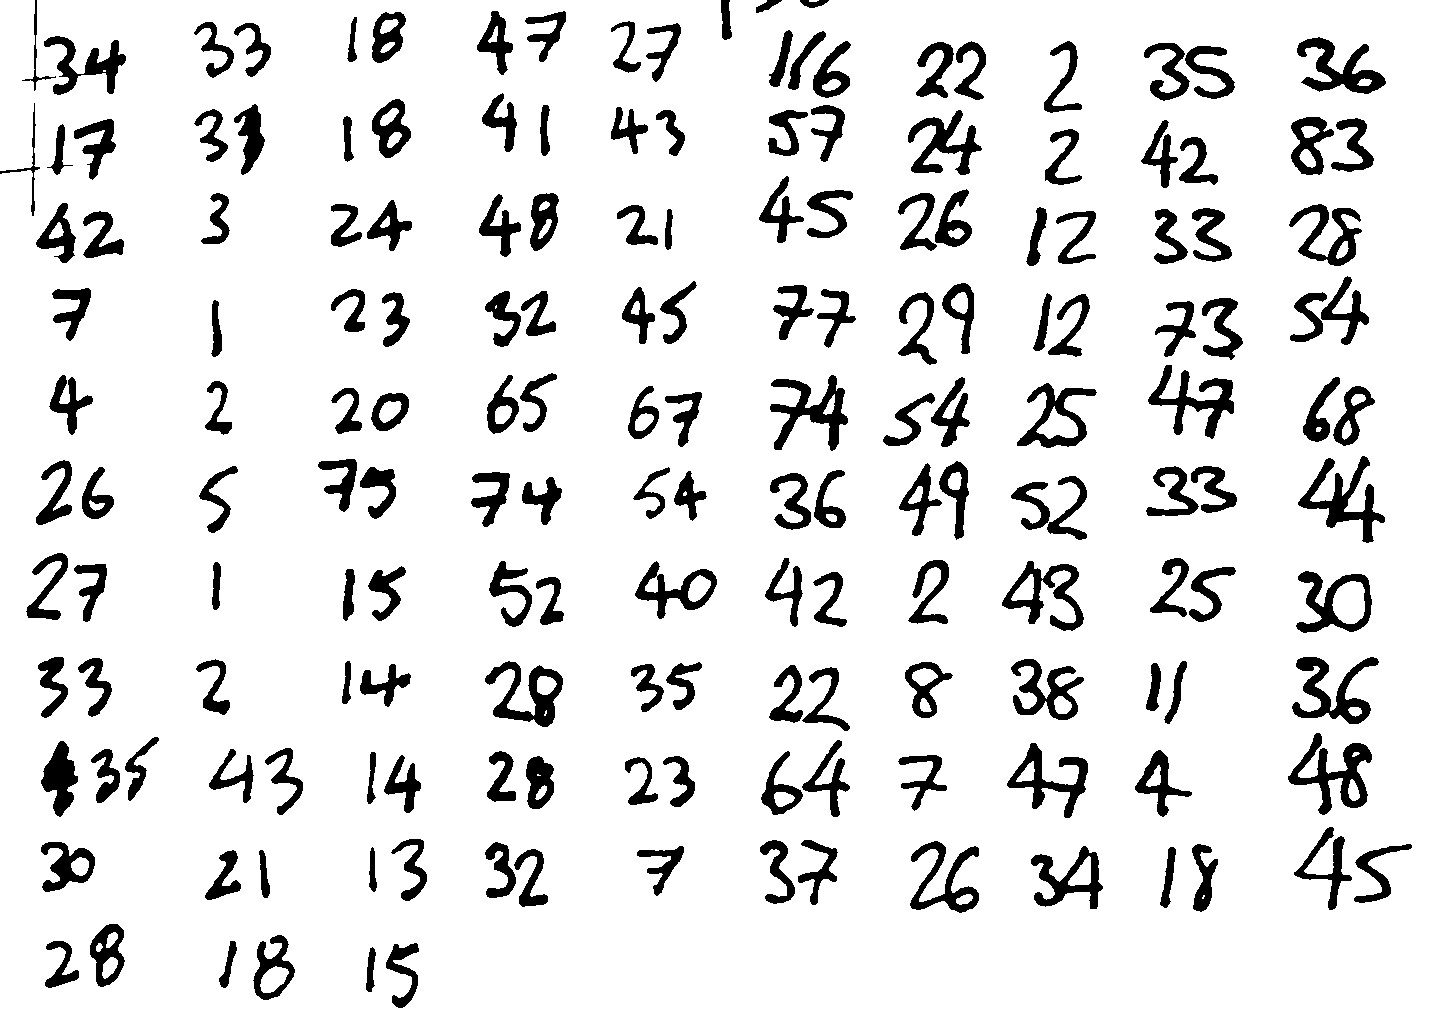 34 33 18 47 27 116 22 2 35 36
17 33 18 41 43 57 24 2 42 83
42 3 24 48 21 45 26 12 33 28
7 1 23 32 45 77 29 12 73 54
4 2 20 65 67 74 54 25 47 68
26 5 75 74 54 36 49 52 33 44
27 1 15 52 40 42 2 43 25 30
33 2 14 28 35 22 8 38 11 36
35 43 14 28 23 64 7 47 4 48
30 21 13 32 7 37 26 34 18 45
28 18 15